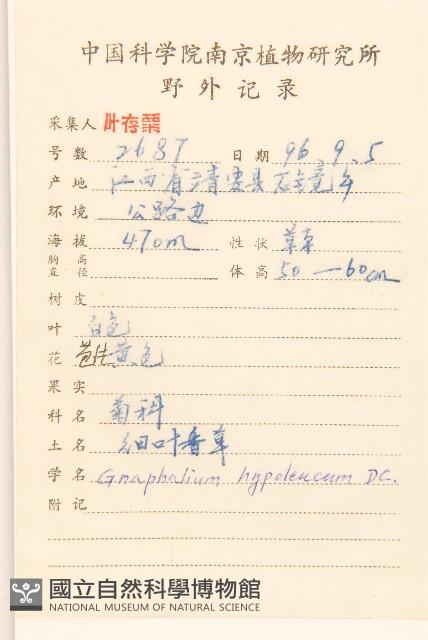 中国科学院南京植物研究所
野外记录
采集人 叶存粟
号数 2687 日期 96.9.5
产地 江西省靖安县石镜乡
环境 公路边
海拔 470m 性状 草本
胸高直径 体高 50—60cm
树皮
叶 白色
花 苞片黄色
果实
科名 菊科
土名 细叶香草
学名 Gnaphalium hypoleucum DC.
附记
國立自然科學博物館
NATIONAL MUSEUM OF NATURAL SCIENCE